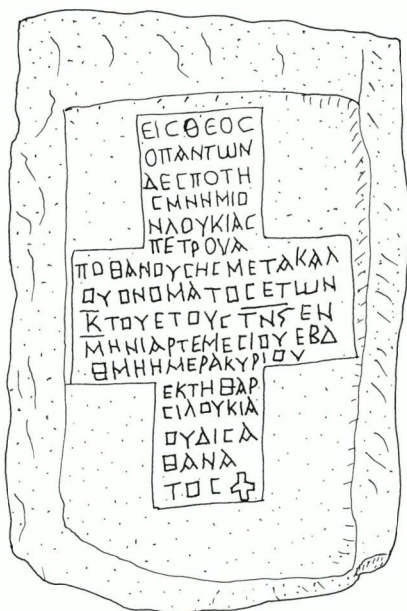 ΕΙCΘΕΟC
ΟΠΑΝΤΩΝ
ΔΕCΠΟΤΗ
CΜΝΗΜΙΟ
ΝΛΟΥΚΙΑC
ΠΕΤΡΟΥΑ
ΠΟΘΑΝΟΥCΗCΜΕΤΑΚΑΛ
ΟΥΟΝΟΜΑΤΟCΕΤΩΝ
ΚΤΟΥΕΤΟΥCΤΝϚΕΝ
ΜΗΝΙΑΡΤΕΜΕCΙΟΥΕΒΔ
ΘΜΗΗΜΕΡΑΚΥΡΙΟΥ
ΕΚΤΗΘΑΡ
CΙΛΟΥΚΙΑ
ΟΥΔΙCΑ
ΘΑΝΑ
ΤΟC✝